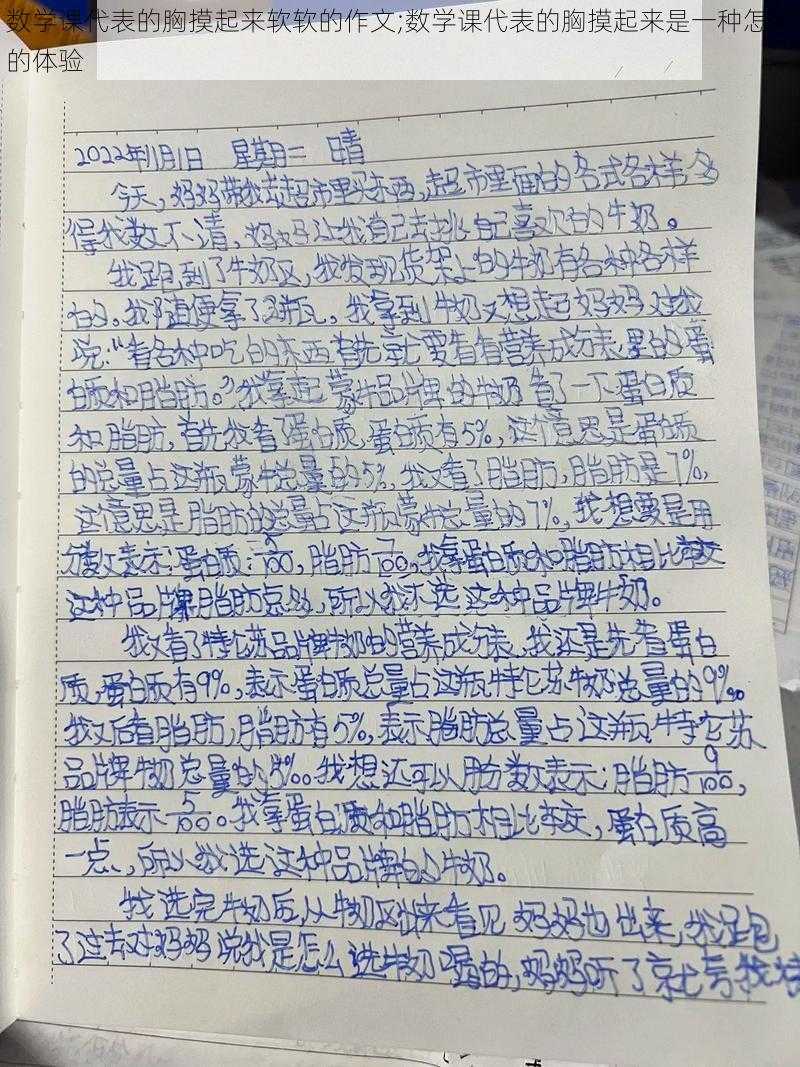 数学课代表的胸摸起来软软的作文;数学课代表的胸摸起来是一种怎
的体验
2022年11月1日 星期二 晴
今天,妈妈带我去超市里买东西,超市里面的各式各样多
得我数不清,妈妈让我自己去挑自己喜欢的牛奶。
我跑到了牛奶区,我发现货架上的牛奶有各种各样
的。我随便拿了2瓶。我拿到牛奶又想起妈妈对我
说:“看各种吃的东西首先定要看看营养成分表里的蛋
白质和脂肪。”我拿起蒙牛品牌的牛奶看了一下蛋白质
和脂肪,首先我看了蛋白质,蛋白质有5%,这个意思是蛋白质
的总量占这瓶蒙牛总量的5%,我又看了脂肪,脂肪是7%,
这个意思是脂肪的总量占这瓶蒙牛总量的7%,我想要是用
分数表示:蛋白质:/100,脂肪7/100,我拿蛋白质和脂肪相比较
这种品牌脂肪点多,所以我不选这种品牌牛奶。
我又看了特伦苏品牌牛奶的营养成分表,我还是先看蛋白
质,蛋白质有9%,表示蛋白质总量占这瓶特仑苏牛奶总量的9%。
我又后看脂肪,脂肪有5%,表示脂肪总量占这瓶特仑苏
品牌牛奶总量的5%。我想还可以用分数表示:脂肪9/100,
脂肪表示5/100。我拿蛋白质和脂肪相比较,蛋白质高
一点,所以我选这种品牌的牛奶。
我选完牛奶后,从牛奶区出来看见妈妈也出来,我跑
了过去对妈妈说我是怎么选牛奶的,妈妈听了就夸我